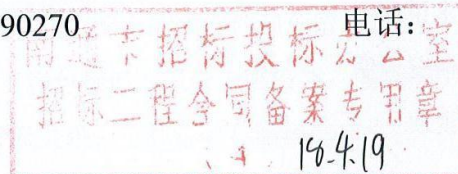 90270 电话:
南通市招标投标办公室
招标工程合同备案专用章
18.4.19